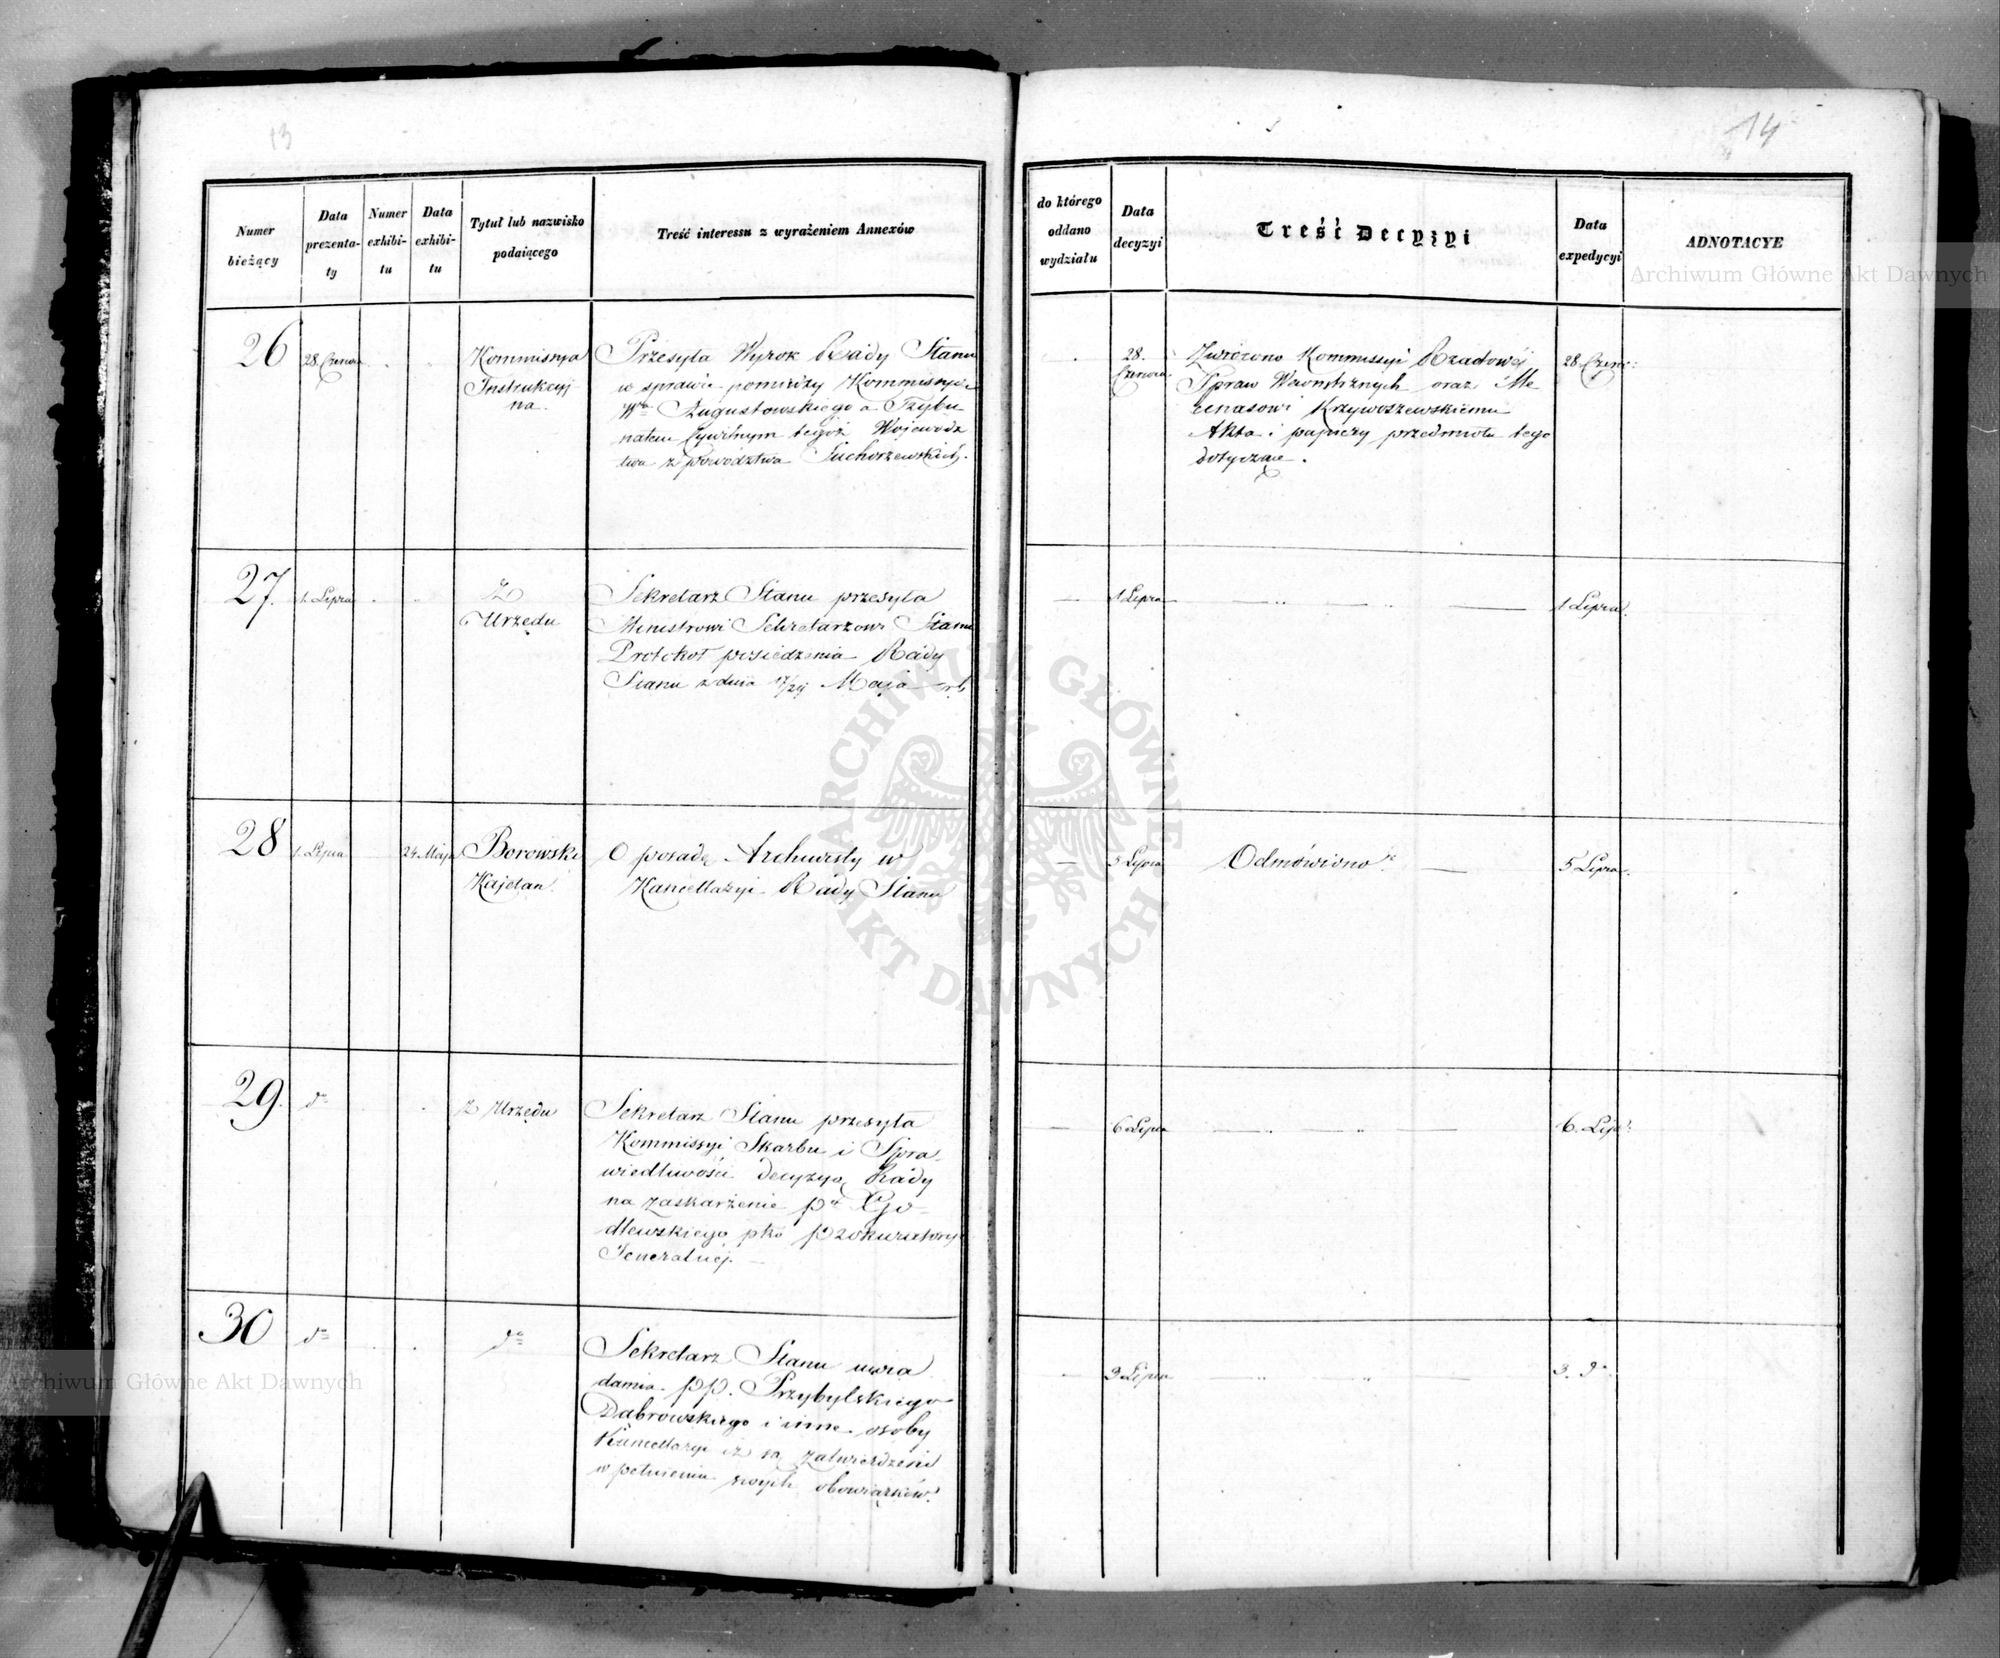 13
14
Numer
bieżący
Data
prezenta-
ty
Numer
exhibi-
tu
Data
exhibi-
tu
Tytuł lub nazwisko
podaiącego
Treść interessu z wyrażeniem Annexów
do którego
oddano
wydziału
Data
decyzyi
Treść Decyzyi
Data
expedycyi
ADNOTACYE
26
28. Czerwca
Kommissya
Instrukcyj
na.
Przesyła Wyrok Rady Stanu
w sprawie pomiędzy Kommissyą
Augustowskiego a Trybu
nałem Cywilnym tegoż Wojewódz
twa z powództwa Suchorzewskich.
28.
Czerwca
Zwrócono Kommissyi Rządowéj
Spraw Wewnętrznych oraz Me
cenasowi Krzywoszewskiemu
Akta i papiery przedmiotu tego
dotyczące.
28 Czerw:
27.
1. Lipca
Z
Urzędu
Sekretarz Stanu przesyła
Ministrowi Sekretarzowi Stanu
Protokół posiedzenia Rady
Stanu z dnia 17/29 Maja rb
1 Lipca
1 Lipca.
28
1. Lipca
24 Maja
Borowski
Kajetan.
O posadę Archiwisty w
Kancellaryi Rady Stanu
5 Lipca
Odmówiono.
5 Lipca.
29.
do
z Urzędu
Sekretarz Stanu przesyła
Kommissyi Skarbu i Spra-
wiedliwości decyzyą Rady
na zaskarżenie po Go-
dlewskiego pko Prokuratoryi
Jeneralnej.
6 Lipca
6. Lip:
30
do
do
Sekretarz Stanu uwia
damia pp. Przybylskiego
Dąbrowskiego i inne osoby
Kancellaryi iż są zatwierdzeni
w pełnieniu swych obowiązków.
3 Lipca
3. do
Archiwum Główne Akt Dawnych
Archiwum Główne Akt Dawnych
ARCHIWUM GŁÓWNE AKT DAWNYCH